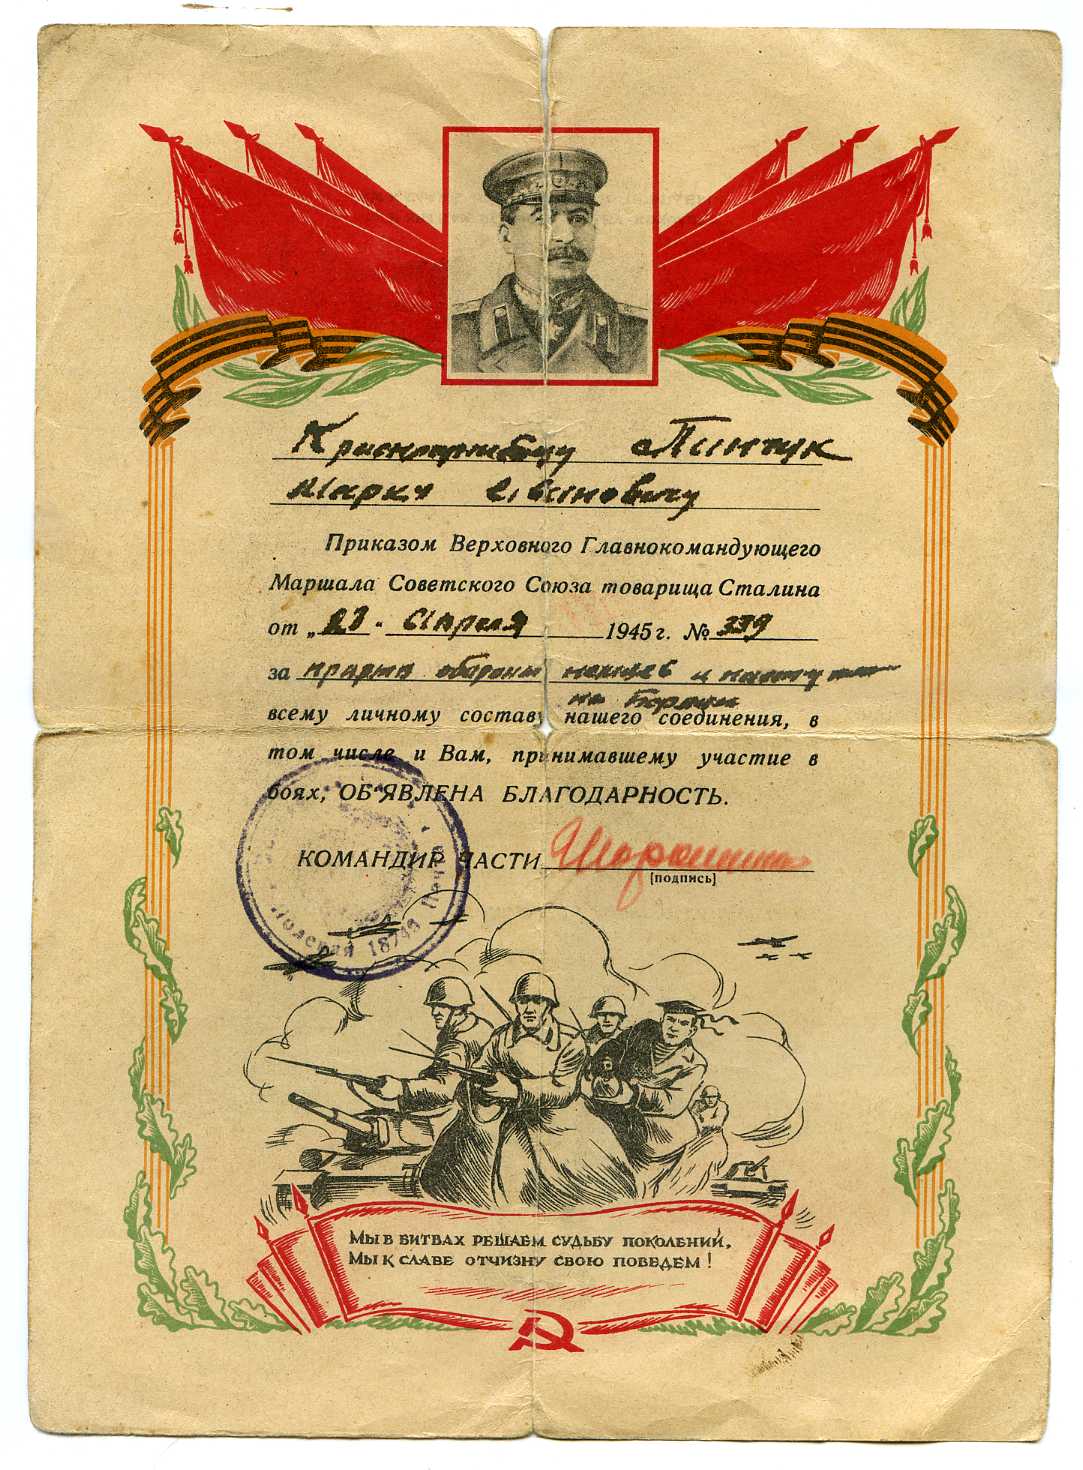 Красноармейцу Пинчук
Марку Ивановичу
Приказом Верховного Главнокомандующего
Маршала Советского Союза товарища Сталина
от „23“ Апреля 1945 г. № 339
за прорыв обороны немцев и наступ
на Берлин
всему личному составу нашего соединения, в
том числе и Вам, принимавшему участие в
боях, ОБ‘ЯВЛЕНА БЛАГОДАРНОСТЬ.
КОМАНДИР ЧАСТИ
[подпись]
Полевая 18746 Почта
Мы в битвах решаем судьбу поколений,
Мы к славе отчизну свою поведем!